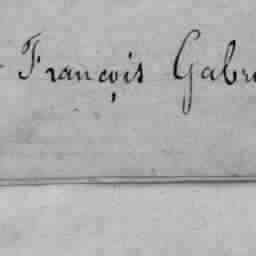 François Gabr